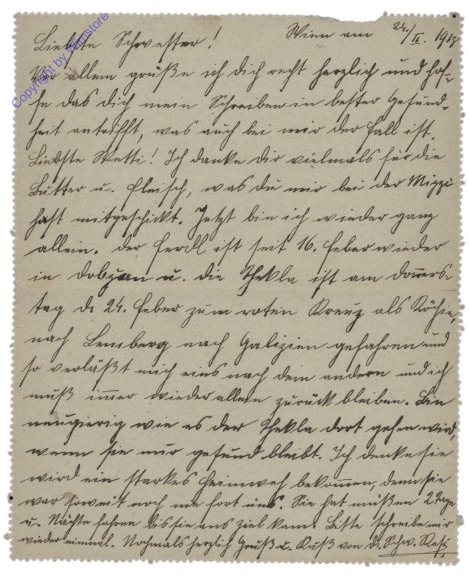 Liebste Schwester! Wien am 24/II. 191
Vor allen grüße ich dich recht herzlich und hof-
fe das dich mein Schreiben in bester Gesund-
heit antrifft, was auch bei mir der Fall ist.
Liebste Betti! Ich danke dir vielmals für die
Butter u. Fleisch, was du mir bei der Mizzi
hast mitgeschickt. Jetzt bin ich wieder ganz
allein. der Ferdl ist seit 16. Feber wieder
in u. die Thekla ist am Donners-
tag d. 24. Feber zum roten Kreuz als Köchin,
nach Lemberg, nach Galizien gefahren und
so verläßt mich eins nach dem andern und ich
muß immer wieder allein zurück bleiben. Bin
neugierig wie es der Thekla dort gehen wird,
wenn sie nur gesund bleibt. Ich denke sie
wird ein starkes Heimweh bekommen, denn sie
war soweit noch nie fort uns. Sie hat müßen 2 Tage
u. Nächte fahren bis sie ans Ziel kam. Bitte schreibe mir
wieder einmal. Nochmals herzlich Gruß u. Kuß von d. Schw. Resi.
Copyright by